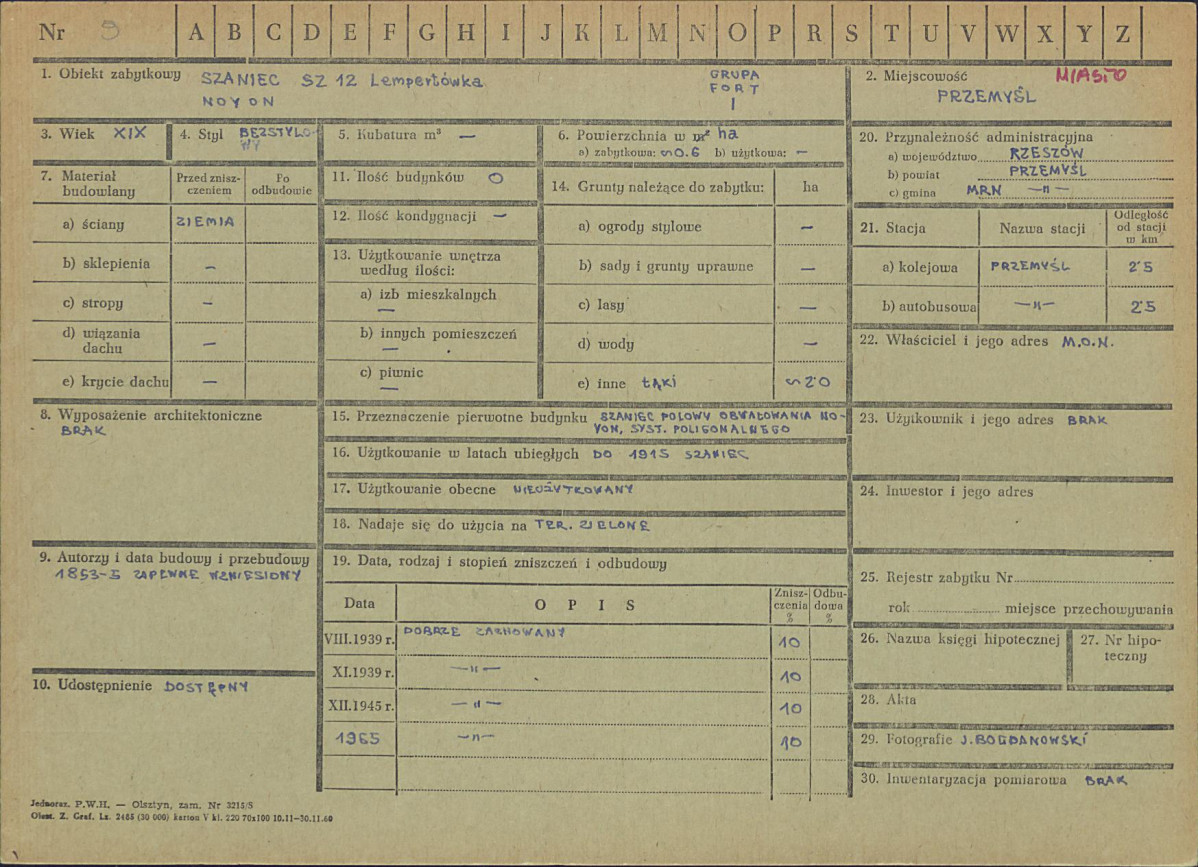 Nr 9 A B C D E F G H I J K L M N O P R S T U V W X Y Z
1. Obiekt zabytkowy SZANIEC SZ 12 Lempertówka
NOYON
GRUPA
FORT
I
2. Miejscowość MIASTO
PRZEMYŚL
3. Wiek XIX
4. Styl BEZSTYLO-
WY
5. Kubatura m³ —
6. Powierzchnia w m² ha
a) zabytkowa: ~0.6 b) użytkowa: —
7. Materiał
budowlany
Przed znisz-
czeniem
Po
odbudowie
a) ściany ZIEMIA
b) sklepienia —
c) stropy —
d) wiązania
dachu —
e) krycie dachu —
8. Wyposażenie architektoniczne
BRAK
9. Autorzy i data budowy i przebudowy
1853-5 ZAPEWNE WZNIESIONY
10. Udostępnienie DOSTĘPNY
11. Ilość budynków O
12. Ilość kondygnacji —
13. Użytkowanie wnętrza
według ilości:
a) izb mieszkalnych
—
b) innych pomieszczeń
—
c) piwnic
—
14. Grunty należące do zabytku: ha
a) ogrody stylowe —
b) sady i grunty uprawne —
c) lasy —
d) wody —
e) inne ŁĄKI ~2·0
15. Przeznaczenie pierwotne budynku SZANIEC POLOWY OBWAŁOWANIA NO-
YON, SYST. POLIGONALNEGO
16. Użytkowanie w latach ubiegłych DO 1915 SZANIEC
17. Użytkowanie obecne NIEUŻYTKOWANY
18. Nadaje się do użycia na TER. ZIELONE
19. Data, rodzaj i stopień zniszczeń i odbudowy
Data O P I S Znisz-
czenia
% Odbu-
dowa
%
VIII.1939 r. DOBRZE ZACHOWANY 10
XI.1939 r. —"— 10
XII.1945 r. —"— 10
1965 —"— 10
20. Przynależność administracyjna
a) województwo RZESZÓW
b) powiat PRZEMYŚL
c) gmina MRN —"—
21. Stacja Nazwa stacji Odległość
od stacji
w km
a) kolejowa PRZEMYŚL 2·5
b) autobusowa —"— 2·5
22. Właściciel i jego adres M.O.N.
23. Użytkownik i jego adres BRAK
24. Inwestor i jego adres
25. Rejestr zabytku Nr
rok miejsce przechowywania
26. Nazwa księgi hipotecznej
27. Nr hipo-
teczny
28. Akta
29. Fotografie J. BOGDANOWSKI
30. Inwentaryzacja pomiarowa BRAK
Jednoraz. P.W.H. — Olsztyn, zam. Nr 3215/S
Olszt. Z. Graf. Lz. 2485 (30 000) karton V kl. 220 70x100 10.11—30.11.60